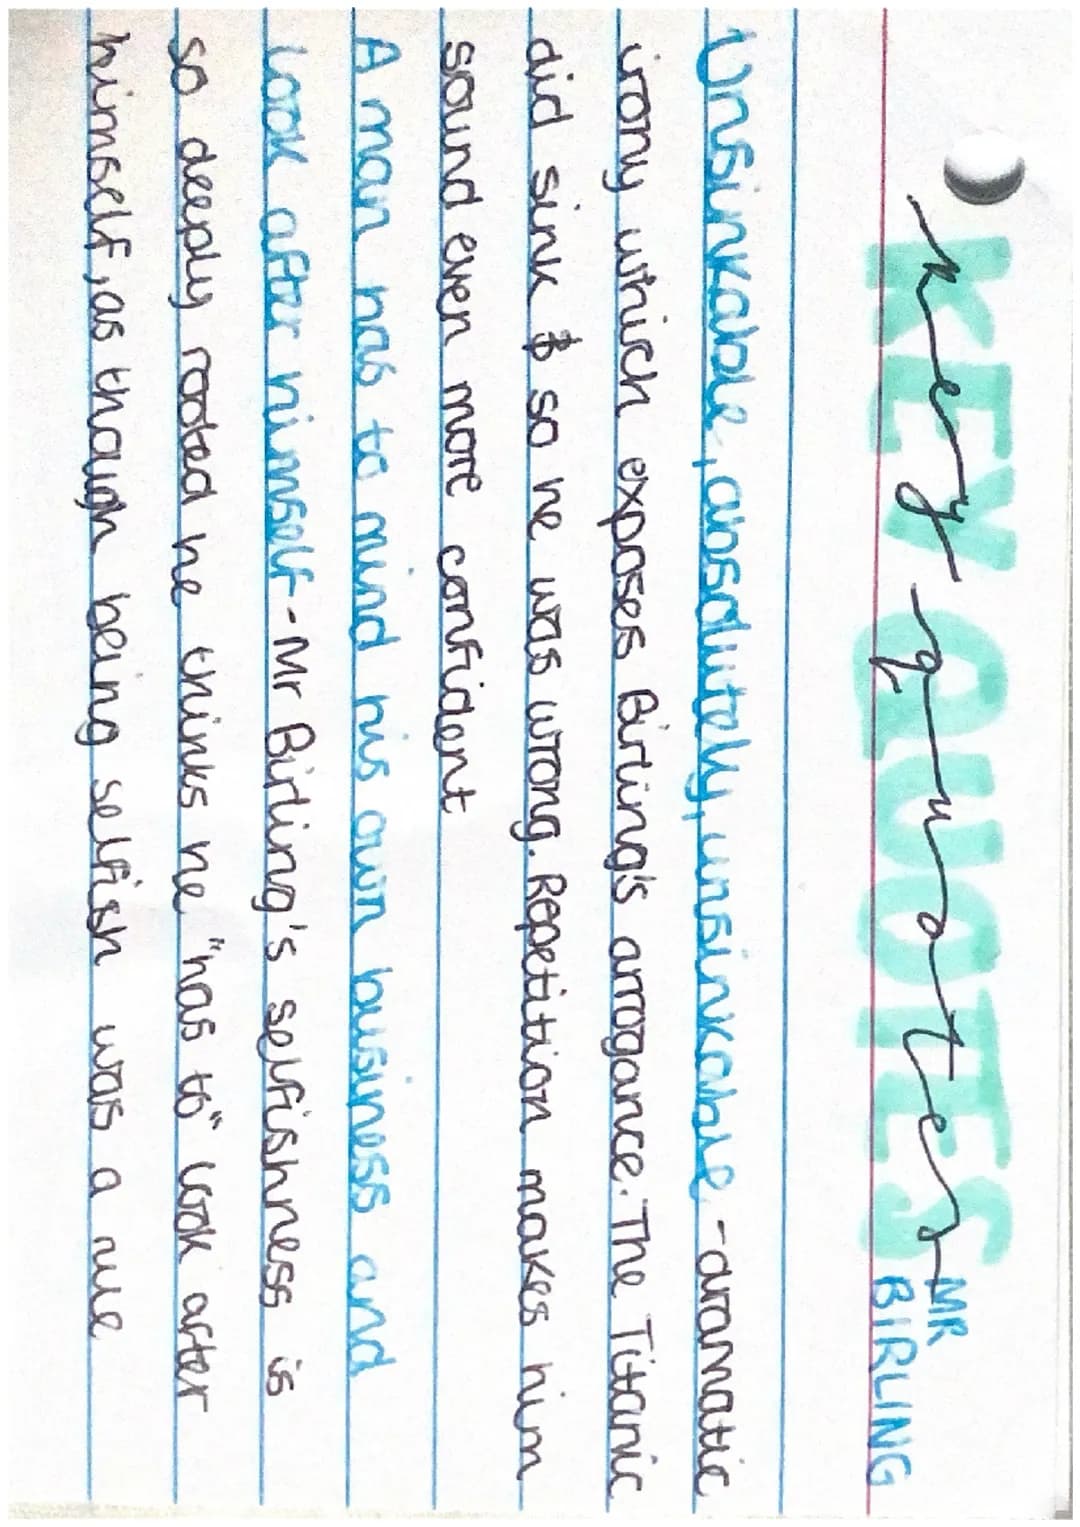 KEY QUOTES
key quotes
MR
BIRLING
Unsinkable, absolutely, unsinkable - dramatic
irony which exposes Birling's arrogance. The Titanic
did sink so he was wrong. Repetition makes him
sound even more confident
A man has to mind his own business and
look after himself - Mr Birling's selfishness is
so deeply rooted he thinks he "has to" look after
himself, as though being selfish was a rule